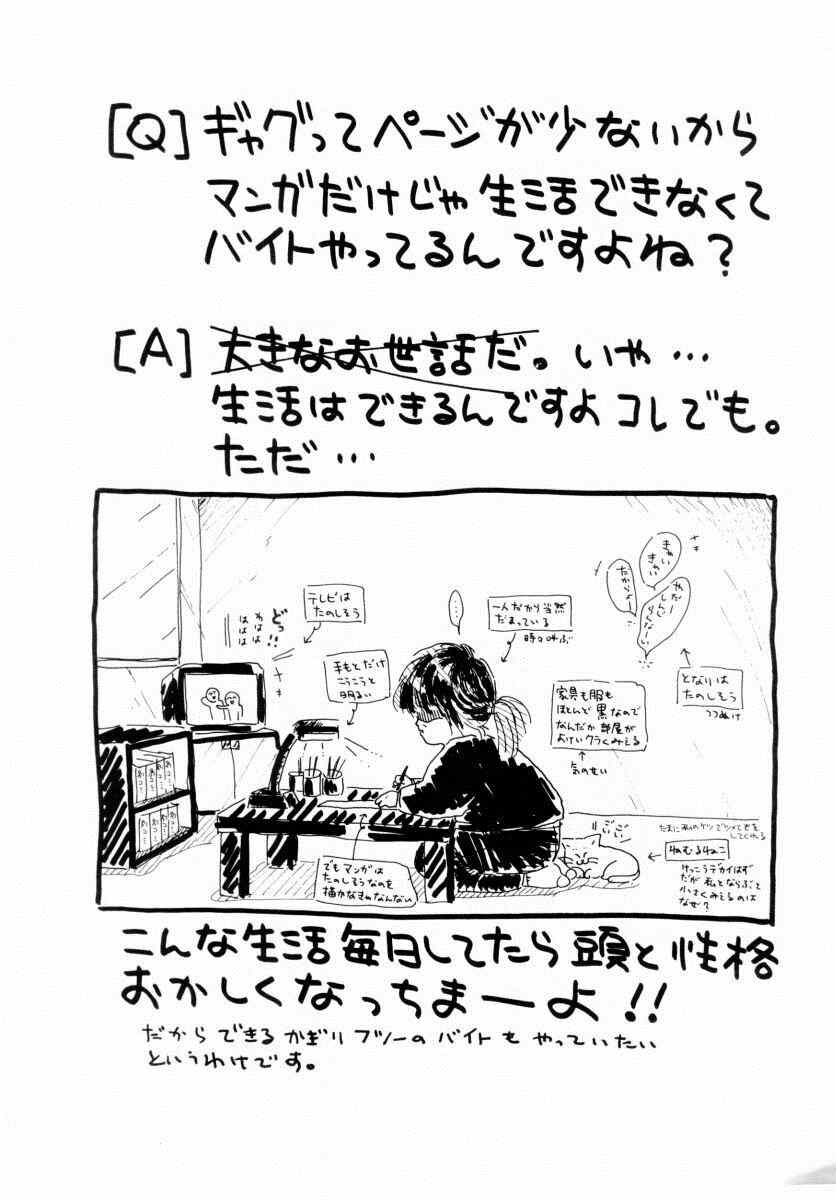 [Q] ギャグってページが少ないから
マンガだけじゃ生活できなくて
バイトやってるんですよね？
[A] 大きなお世話だ。いや…
生活はできるんですよコレでも。
ただ…
きゃい
きゃい
だからよー
やだー
しんじ
らんなーい
となりは
たのしそう
つつぬけ
一人だから当然
だまっている
時々叫ぶ
……
テレビは
たのしそう
どっ!!
わはは
ははは
手もとだけ
こうこうと
明るい
家具も服も
ほとんど黒なので
なんだか部屋が
よけいクラくみえる
気のせい
でもマンガは
たのしそうなのを
描かなきゃなんない
ごごい
たまに私のケツでツメとぎを
してくれる
ねむるねこ
けっこうデカイはず
だが私とならぶと
小さくみえるのは
なぜ？
こんな生活毎日してたら頭と性格
おかしくなっちまーよ!!
だからできるかぎりフツーのバイトもやっていたい
というわけです。